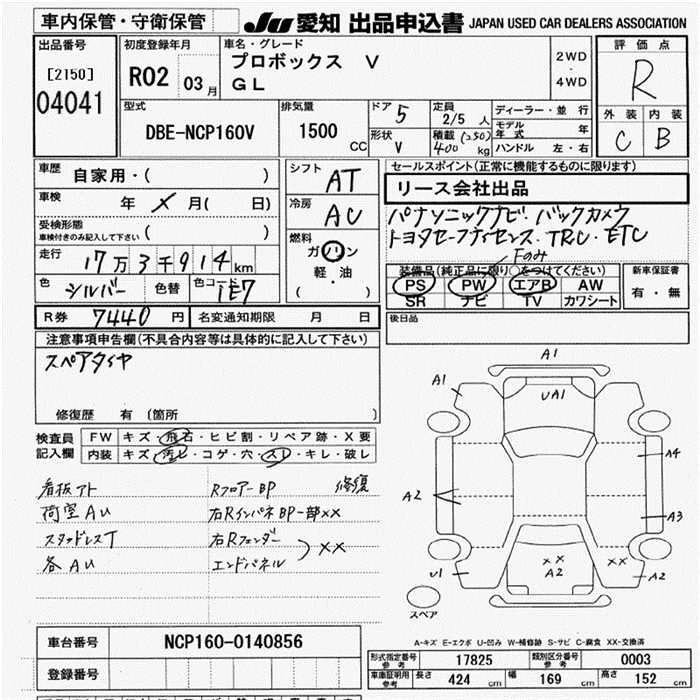 車内保管・守衛保管
JU 愛知 出品申込書 JAPAN USED CAR DEALERS ASSOCIATION
出品番号
[2150]
04041
初度登録年月
R02 03月
車名・グレード
プロボックス V
GL
2WD
・
4WD
評価点
R
外装 内装
C B
型式
DBE-NCP160V
排気量
1500 CC
ドア 5
形状 V
定員 2/5 人
積載 (250) 400 kg
ディーラー・並行
モデル年式 年
ハンドル 左・右
車歴 自家用・( )
車検 年 × 月( 日)
受検形態
車検付きのみ記入して下さい ( )
走行 17万3千914km
色 シルバー 色替 色コード 1E7
シフト AT
冷房 AC
燃料
ガソリン
軽・油
( )
セールスポイント(正常に機能するものに限ります)
リース会社出品
パナソニックナビ・バックカメラ
トヨタセーフティセンス・TRC・ETC
Fのみ
装備品(純正品に限り○をつけてください)
PS PW エアB AW
SR ナビ TV カワシート
新車保証書
有・無
R券 7440円 名変通知期限 月 日
後日品
注意事項申告欄(不具合内容等は具体的に記入して下さい)
スペアタイヤ
修復歴 有 (箇所 )
検査員記入欄
FW キズ・飛石・ヒビ割・リペア跡・X要
内装 キズ・汚レ・コゲ・穴・スレ・キレ・破レ
看板アト
荷室AU
スタッドレスT
各AU
RフロアーBP 修復
右RインパネBP一部××
右Rフェンダー
エンドパネル
)××
A1
A1
UA1
A4
A2
A3
U1
××
A2
××
A2
スペア
A-キズ E-エクボ U-凹み W-補修跡 S-サビ C-腐食 XX-交換済
車台番号 NCP160-0140856
登録番号
形式指定番号 参考 17825 類別区分番号 参考 0003
車庫証明用 参考 長さ 424 cm 幅 169 cm 高さ 152 cm